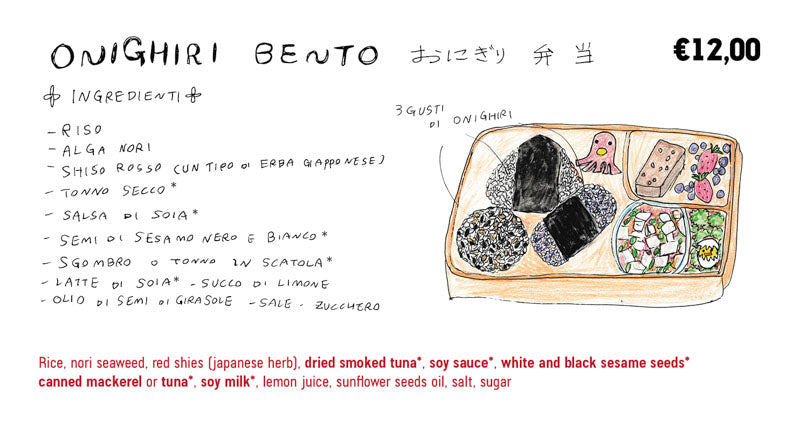 ONIGHIRI BENTO おにぎり 弁当
€12,00
INGREDIENTI
3 GUSTI
DI ONIGHIRI
- RISO
- ALGA NORI
- SHISO ROSSO (UN TIPO DI ERBA GIAPPONESE)
- TONNO SECCO*
- SALSA DI SOIA*
- SEMI DI SESAMO NERO E BIANCO*
- SGOMBRO O TONNO IN SCATOLA*
- LATTE DI SOIA* - SUCCO DI LIMONE
- OLIO DI SEMI DI GIRASOLE - SALE - ZUCCHERO
Rice, nori seaweed, red shies (japanese herb), dried smoked tuna*, soy sauce*, white and black sesame seeds*
canned mackerel or tuna*, soy milk*, lemon juice, sunflower seeds oil, salt, sugar